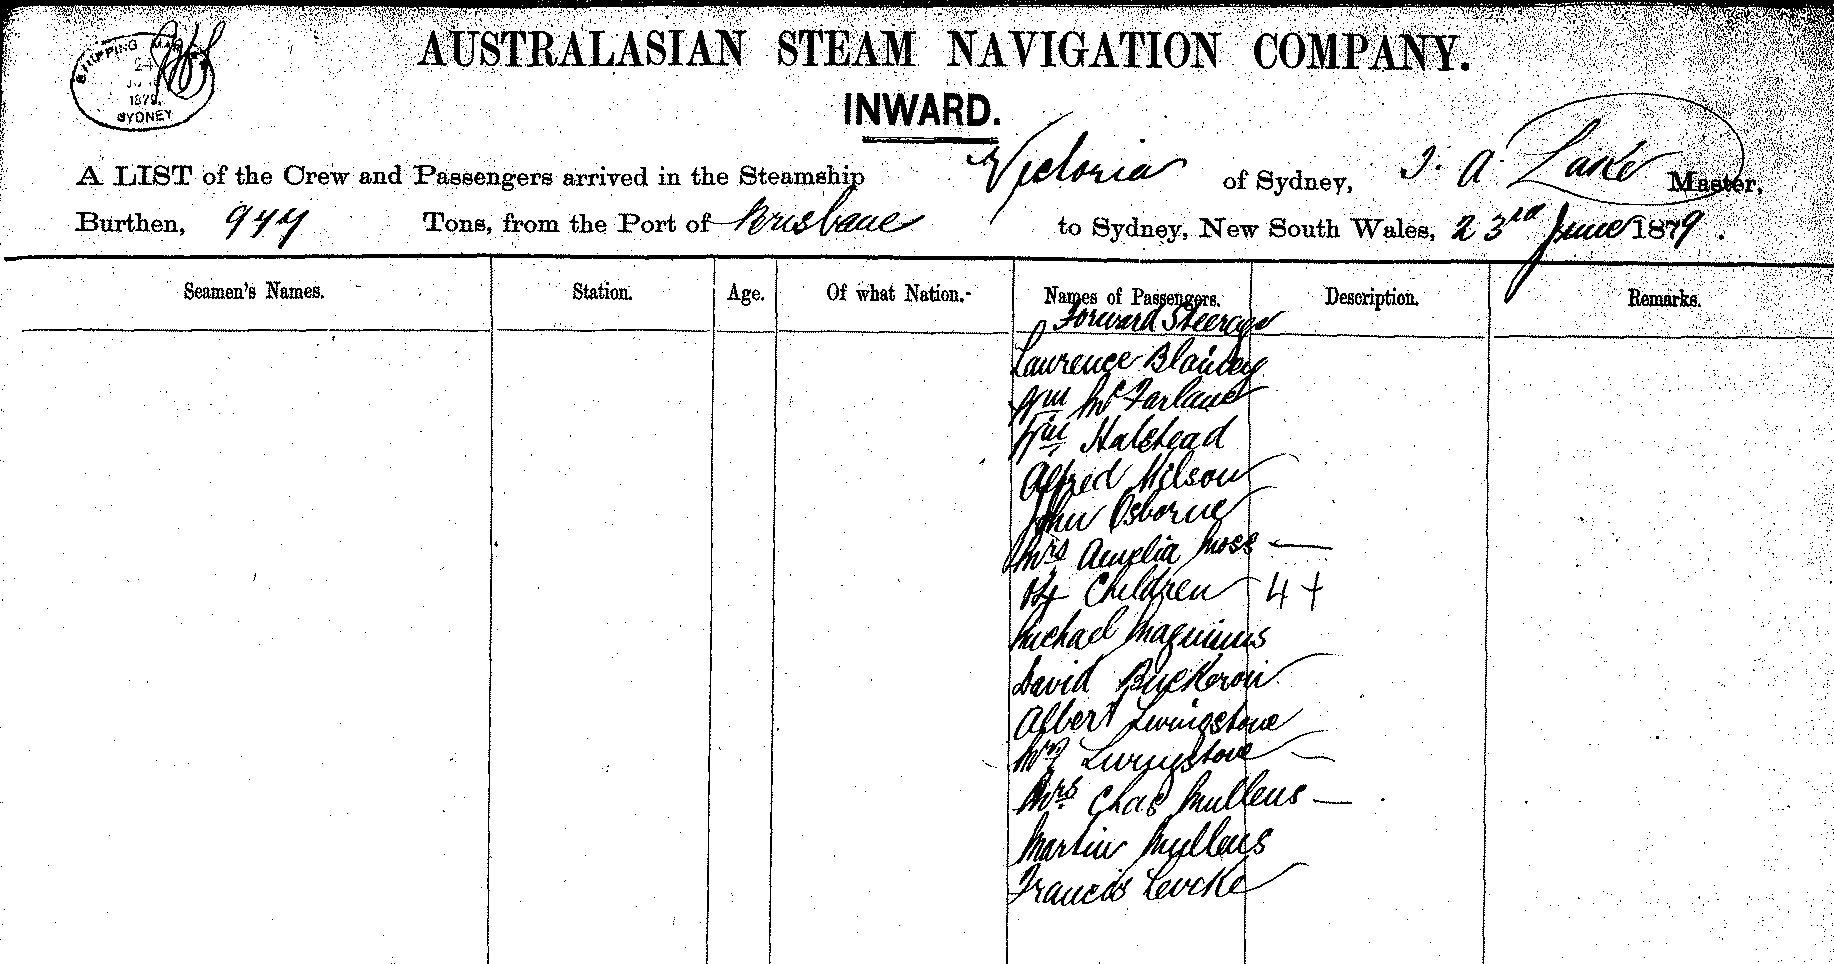 SHIPPING MASTER
1879
SYDNEY
AUSTRALASIAN STEAM NAVIGATION COMPANY.
INWARD.
A LIST of the Crew and Passengers arrived in the Steamship Victoria of Sydney, J. A. Lake Master,
Burthen, 977 Tons, from the Port of Brisbane to Sydney, New South Wales, 23rd June 1879.
Seamen's Names. Station. Age. Of what Nation. Names of Passengers. Description. Remarks.
Forward Steerage
Lawrence
Wm McFarlane
Wm Halstead
Alfred Wilson
John Osborne
Mrs Amelia Moss —
Children 4 +
Michael
David
Albert Livingstone
Livingstone
Mrs Chas Mullens —
Martin Mullens
Francis